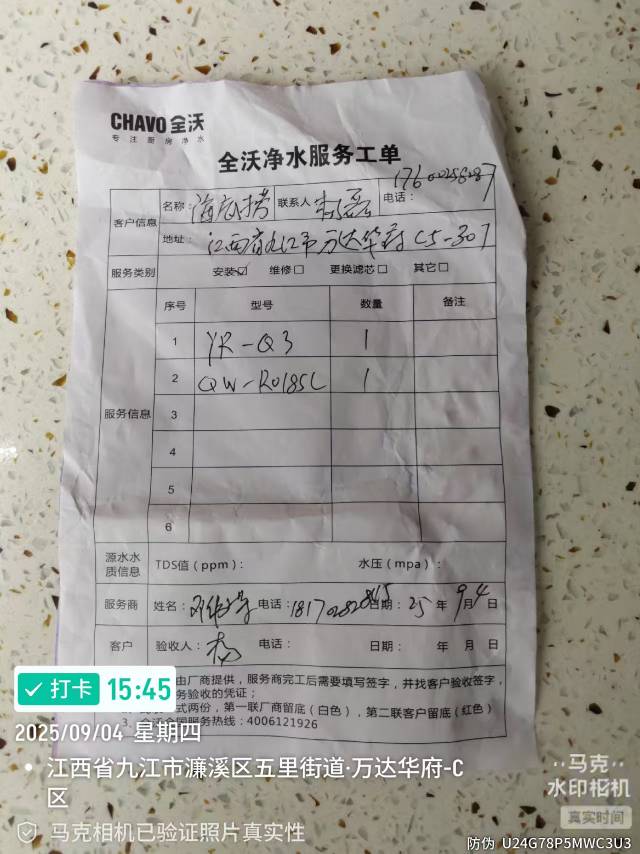 CHAVO 全沃
专注厨房净水
全沃净水服务工单
客户信息 名称: 海底捞 联系人 电话:
地址: 江西省九江市万达华府 C5-307
服务类别 安装☑ 维修□ 更换滤芯□ 其它□
服务信息 序号 型号 数量 备注
1 YR-Q3 1
2 QW-R0185L 1
3
4
5
6
源水水质信息 TDS值(ppm): 水压(mpa):
服务商 姓名: 电话: 日期: 25 年 9 月 4 日
客户 验收人: 杨 电话: 日期: 年 月 日
由厂商提供，服务商完工后需要填写签字，并找客户验收签字，
务验收的凭证；
式两份，第一联厂商留底(白色)，第二联客户留底(红色)
3、全沃全国服务热线：4006121926
打卡 15:45
2025/09/04 星期四
江西省九江市濂溪区五里街道·万达华府-C
区
马克相机已验证照片真实性
马克
水印相机
真实时间
防伪 U24G78P5MWC3U3